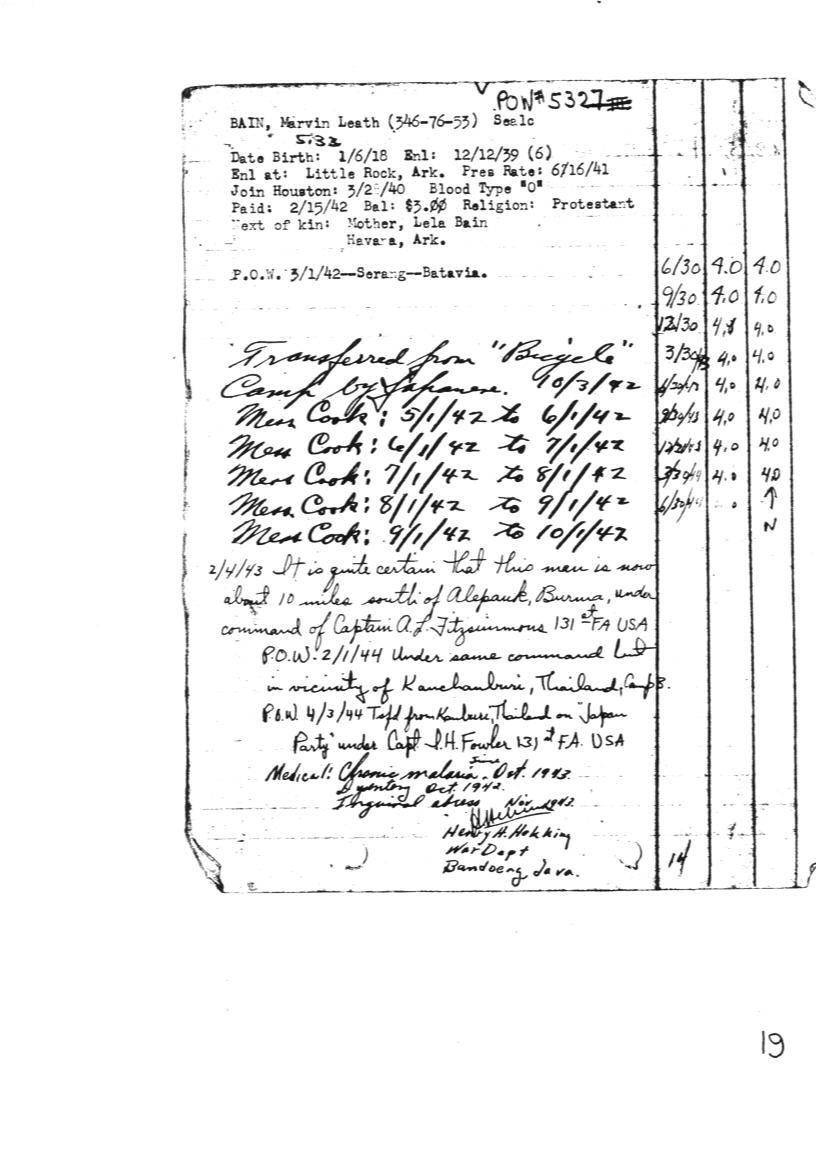 POW# 5327
BAIN, Marvin Leath (346-76-53) Sea1c
5'33
Date Birth: 1/6/18 Enl: 12/12/39 (6)
Enl at: Little Rock, Ark. Pres Rate: 6/16/41
Join Houston: 3/2 /40 Blood Type "O"
Paid: 2/15/42 Bal: $3.00 Religion: Protestant
Next of kin: Mother, Lela Bain
Havana, Ark.
P.O.W. 3/1/42--Serang--Batavia.
6/30 4.0 4.0
9/30 4.0 4.0
12/30 4.0
3/30/43 4.0 4.0
4.0 4.0
9/30/43 4.0 4.0
12/30/43 4.0 4.0
3/30/44 4.0 4.0
6/30/44 .0 ↑
N
Transferred from "Bicycle"
Camp by Japanese. 10/3/42
Mess Cook: 5/1/42 to 6/1/42
Mess Cook: 6/1/42 to 7/1/42
Mess Cook: 7/1/42 to 8/1/42
Mess Cook: 8/1/42 to 9/1/42
Mess Cook: 9/1/42 to 10/1/42
2/4/43 It is quite certain that this man is now
about 10 miles south of Alepauk, Burma, under
command of Captain A.L. Fitzsimmons 131 st FA USA
P.O.W. 2/1/44 Under same command but
in vicinity of Kanchanburi, Thailand, Camp 3.
P.O.W. 4/3/44 Tsfd from Kanburi, Thailand on "Japan
Party" under Capt. I.H. Fowler 131 st FA. USA
Medical: Chronic malaria. Since Oct. 1942.
Dysentery Oct. 1942.
Inguinal abcess Nov 1942.
Henry H. Hekking
War Dept
Bandoeng Java.
14
19